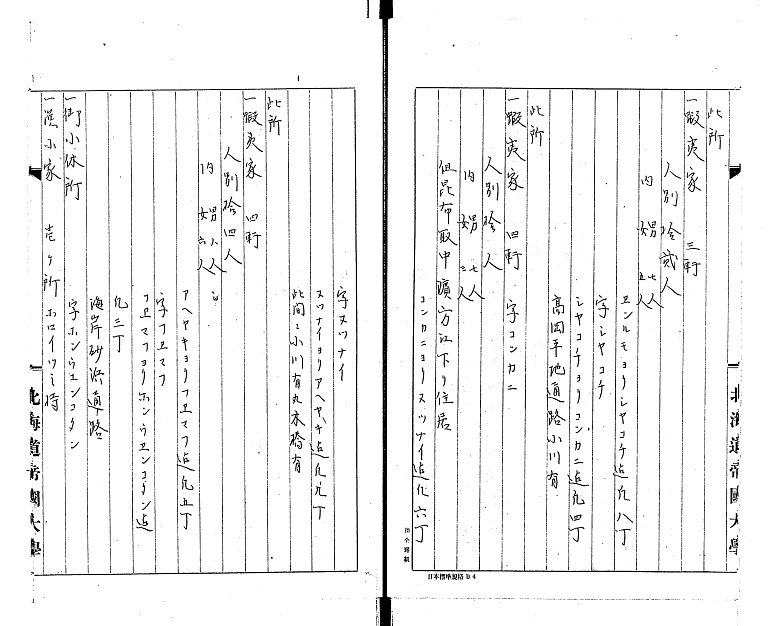 此所
一蝦夷家 三軒
人別拾弐人
内 男七人
女五人
ヱンルモヨリシヤコチ迄凡八丁
字シヤコチ
シヤコチヨリコンカニ迄凡四丁
高岡平地道路小川有
字コンカニ
此所
一蝦夷家 四軒
人別拾人
内 男七人
女三人
但昆布取中廣方江下り住居
コンカニヨリヌツナイ迄凡六丁
北海道帝國大學
日本標準規格B4
字ヌツナイ
ヌツナイヨリアヘヤキ迄凡九丁
此間ニ小川有丸木橋有
此所
一蝦夷家 四軒
人別拾四人
内 男八人
女六人
アヘヤキヨリフヱマフ迄凡五丁
字フヱマフ
フヱマフヨリホンウヱンコタン迄
凡三丁
海岸砂浜道路
字ホンウヱンコタン
一御小休所
一漁小家 壱ヶ所 ホロイツミ持
北海道帝國大學